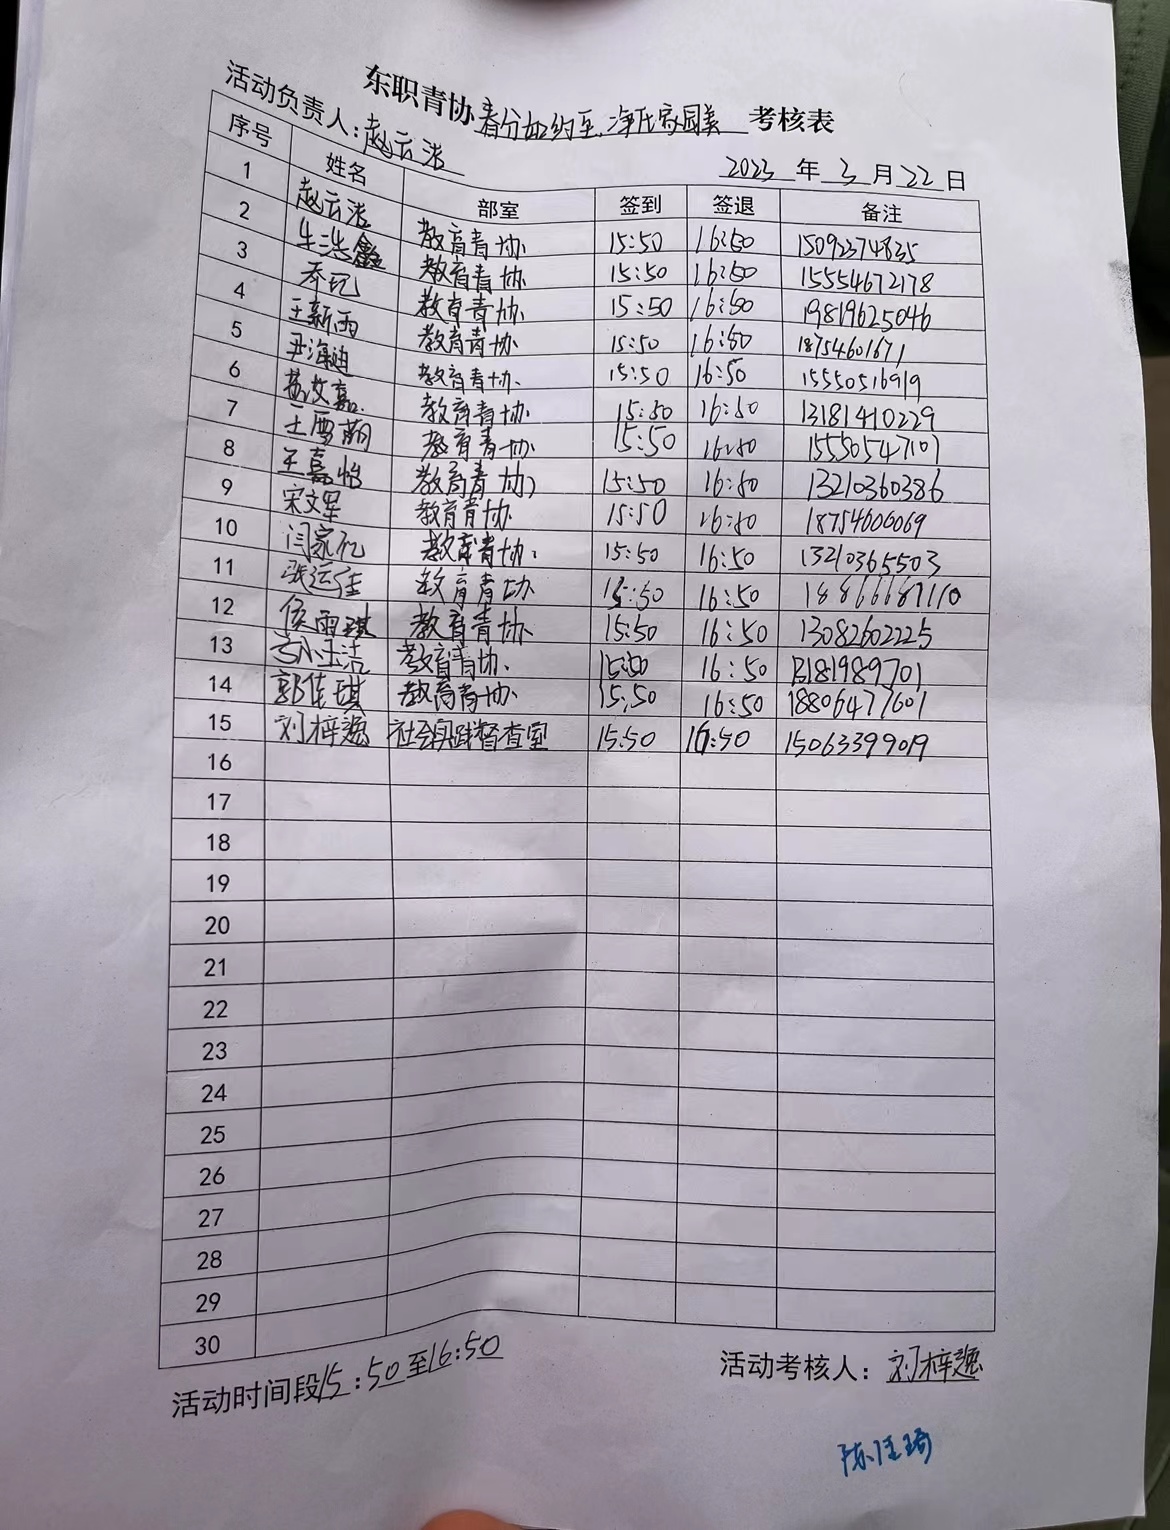 东职青协春分如约至,净化家园美 考核表
活动负责人:赵云浩 2023年3月22日
序号 姓名 部室 签到 签退 备注
1 赵云浩 教育青协 15:50 16:50 15092374835
2 牛浩鑫 教育青协 15:50 16:50 15554672178
3 乔玘 教育青协 15:50 16:50 19819625046
4 王新雨 教育青协 15:50 16:50 18754601671
5 尹海迪 教育青协 15:50 16:50 15550516919
6 苏汶嘉 教育青协 15:50 16:50 13181410229
7 王雪萌 教育青协 15:50 16:50 15550547107
8 王嘉怡 教育青协 15:50 16:50 13210360386
9 宋文星 教育青协 15:50 16:50 18754606069
10 闫家亿 教育青协 15:50 16:50 13210365503
11 张运佳 教育青协 15:50 16:50 18866687110
12 侯雨琪 教育青协 15:50 16:50 13082602225
13 高玉洁 教育青协 15:50 16:50 13181989701
14 郭佳琪 教育青协 15:50 16:50 18806477601
15 刘梓逸 社会实践督查室 15:50 16:50 15063399019
16
17
18
19
20
21
22
23
24
25
26
27
28
29
30
活动时间段15:50至16:50 活动考核人:刘梓逸
陈佳琦